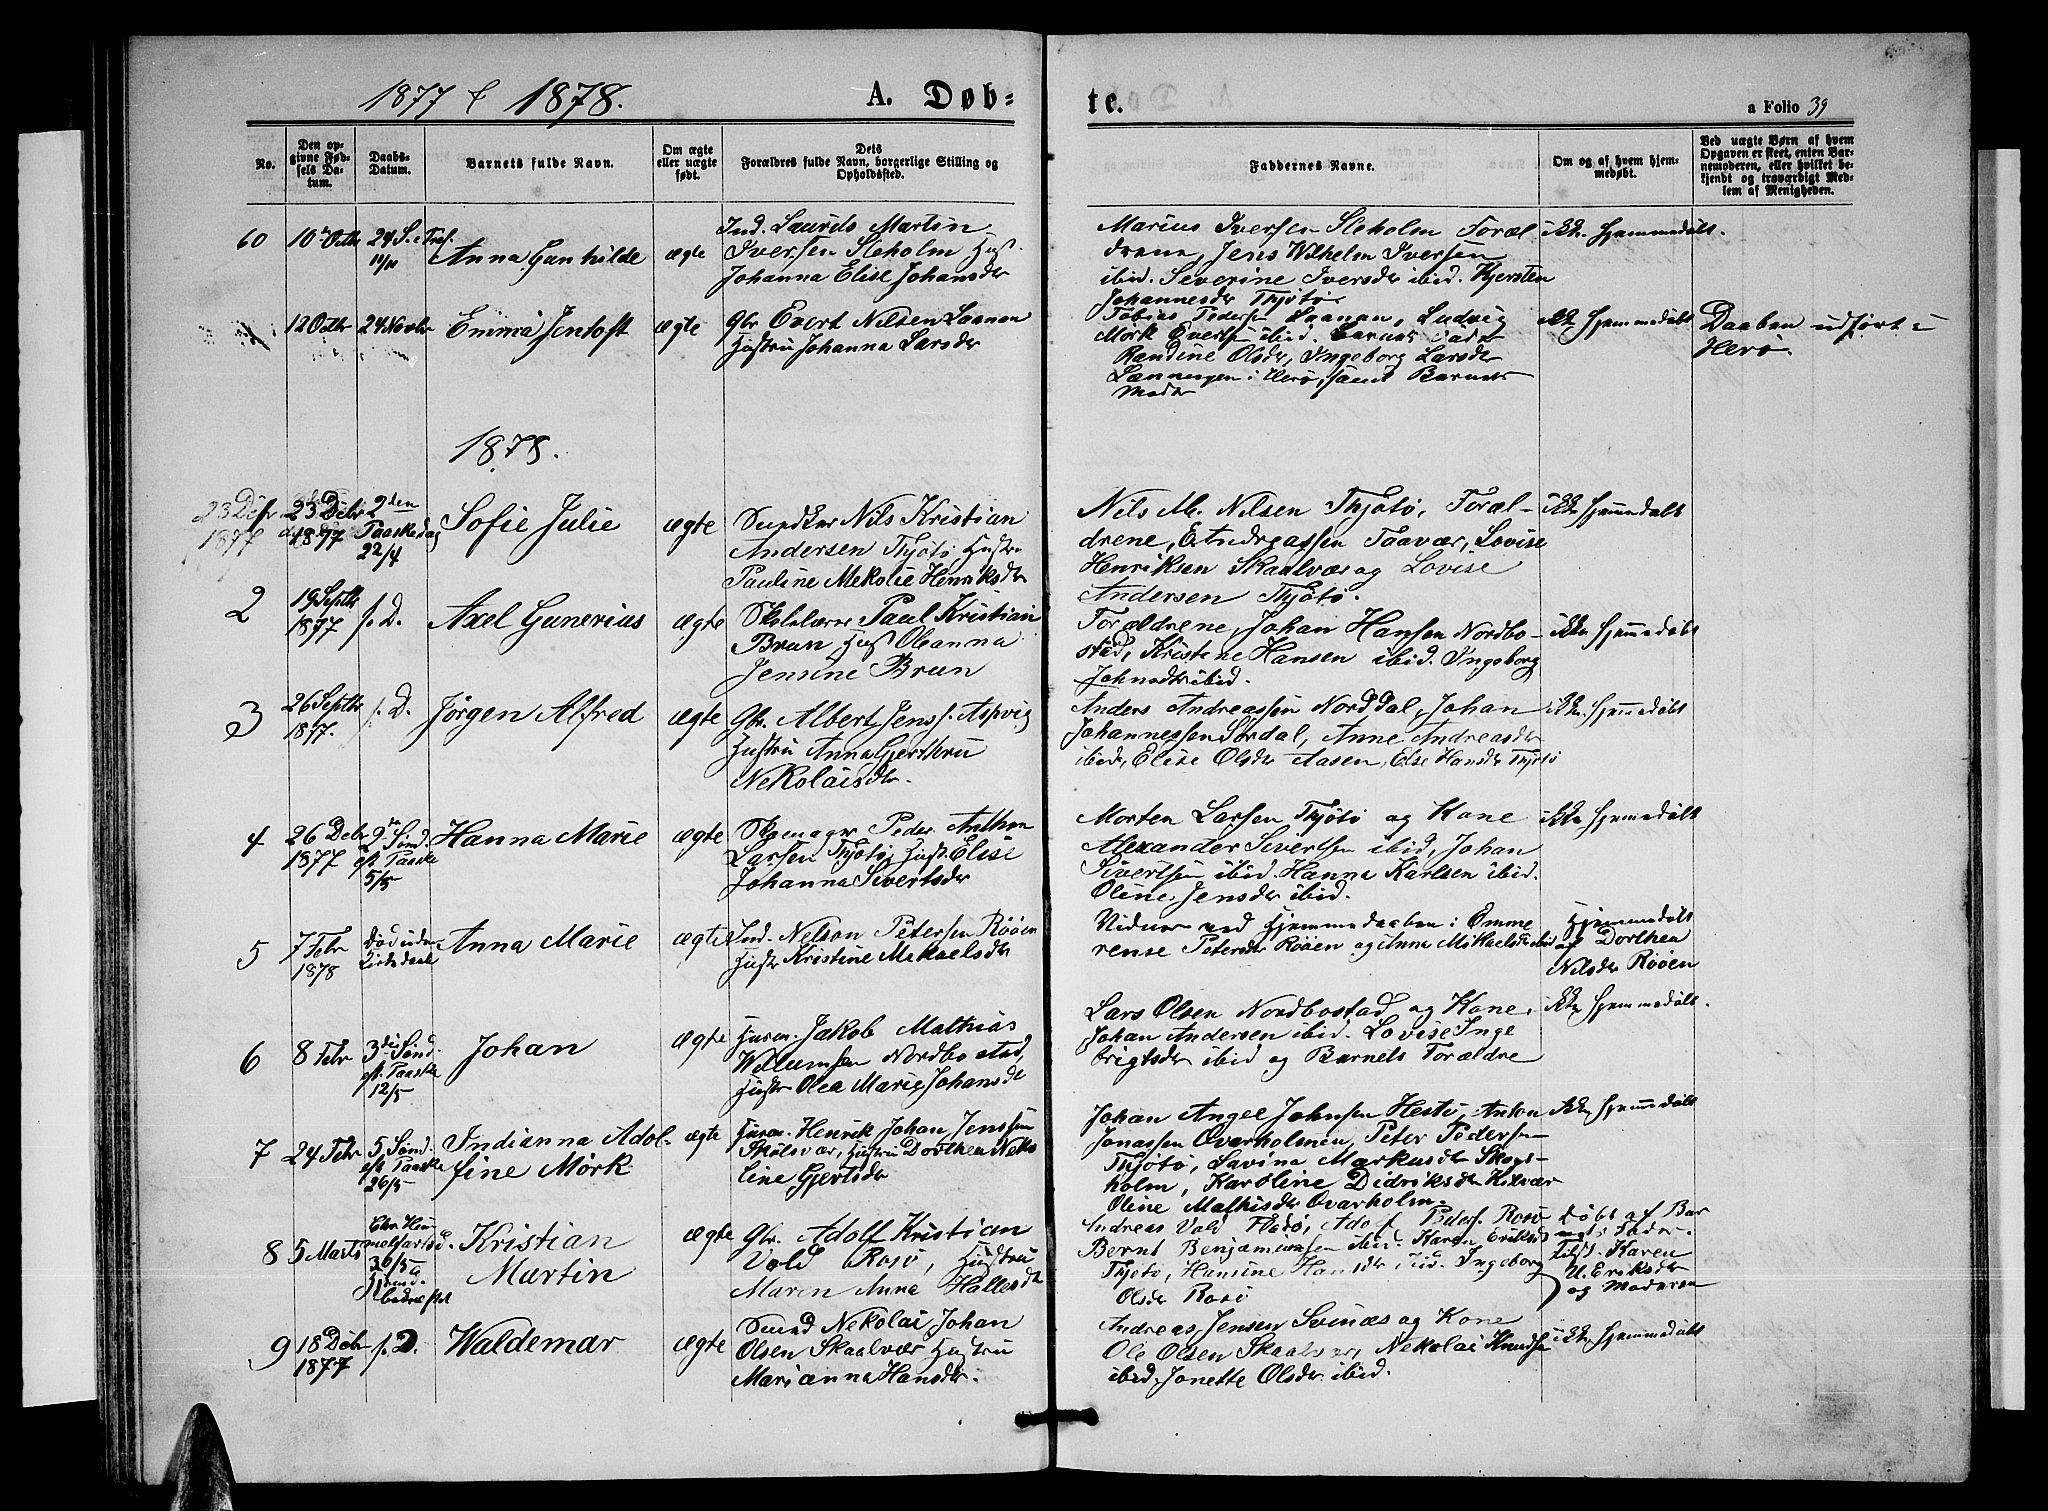 1877 & 1878.
A. Døb=
te.
a Folio 39
No.
Den op-
givne Fød-
sels Da-
tum.
Daabs-
Datum.
Barnets fulde Navn.
Om ægte
eller uægte
født.
Dets
Forældres fulde Navn, borgerlige Stilling og
Opholdssted.
Faddernes Navne.
Om og af hvem hjem-
medøbt.
Ved uægte Børn af hvem
Opgaven er skeet, enten Bar-
nemoderen, eller hvilket be-
kjendt og troværdigt Med-
lem af Menigheden.
60
10 Octbr
24 S. e Tref.
11/11
Anna Gunhilde
ægte
Ind. Laurits Martin
Iversen Sleholm Hust.
Johanna Elise Johansdr
Marius Iversen Sleholm Foræl
drene, Jens Wilhelm Iversen
ibid. Severine Iversdr ibid. Kjersten
Johannesdr Thjøtø
ikke Hjemmedøbt.
12 Octbr
24 Novbr
Emma Jentoft
ægte
Gbr Evert Nilsen Laanan
Hustru Johanna Larsdr
Tobias Pedersen Laanan, Ludvig
Mørk Evertsen ibid. Barnets Fader
Randine Olsdr, Ingeborg Larsdr
i Herø, samt Barnets
Moder
ikke Hjemmedøbt
Daaben udført i
Herø.
1878.
23 Debr
1877
1
23 Debr
1877
2den
Paaskedag
22/4
Sofie Julie
ægte
Nils Kristian
Andersen Thjøtø Hustru
Pauline Mekolie Henriksdr
Nils M. Nilsen Thjøtø, Foræl-
drene, E. Andreassen Taavær, Lovise
Henriksen Skaalvær og Lovise
Andersen Thjøtø.
ikke Hjemmedøbt
2
19 Septbr
1877
s. D.
Axel Gunerius
ægte
Skolelærer Paul Kristian
Brun, Hust Oleanna
Jensine Brun
Forældrene, Johan Hansen Nordbo-
stad, Kristine Hansen ibid. Ingeborg
Johnsdtr ibid.
ikke Hjemmedøbt
3
26 Septbr
1877.
s. D.
Jørgen Alfred
ægte
Gbr. Albert Jens s. Aspvig
Hustru Anna Gjerttru
Nekolaisdtr.
Anders Andreassen Norddal, Johan
Johannessen Sørdal, Anne Andreasdr
ibid, Elise Olsdr Aasen, Else Hansdr Thjøtø
ikke Hjemmedøbt
4
26 Debr
1877
2den Sønd.
eft Paaske
5/5
Hanna Marie
ægte
Skomager Peder Anthon
Larsen Thjøtø Hust. Elise
Johanna Sivertsdr
Morten Larsen Thjøtø og Kone
Alexander Sivertsen ibid, Johan
Sivertsen ibid. Hanna Karlsen ibid.
Oline Jensdr ibid.
ikke Hjemmedøbt
5
7 Febr
1878
Død uden
Kirkedaab
Anna Marie
ægte
Ind. Nelson Petersen Røøen
Hustr Kristine Mekaelsdr
Vidner ved Hjemmedaaben: Emme
rense Petersdr Røøen og Anna Mikaelsdr ibid
Hjemmedøbt
af Dorthea
Nilsdr Røøen
6
8 Febr
3die Sønd.
eft. Paaske
12/5
Johan
ægte
Husm. Jakob Mathias
Willumsen Nordbostad,
Hustr Olea Marie Johansdt
Lars Olsen Nordbostad og Kone,
Johan Andersen ibid. Lovise Inge
brigtsdr ibid og Barnets Forældre
ikke Hjemmedøbt.
7
24 Febr
5 Sønd.
eft Paaske
26/5
Indianna Adol-
fine Mørk
ægte
Husm. Henrik Johan Jenssen
Skølsvær, Hustru Dorthea Neko
line Gjertsdr
Johan Angel Johnsen Hestø, Anton
Jonassen Ovarholmen, Peter Pedersen
Thjøtø, Lavina Markusdr Skogs-
holm, Karoline Didriksdr Kitvær
Oline Mathisdr Ovarholm.
ikke Hjemmedøbt
8
5 Marts
Chr. Him
melfartsd.
30/5
Hjemd.
bedræftet
Kristian
Martin
ægte
Gbr. Adolf Kristian
Vold Rosø, Hustru
Maren Anna Hallesdt
Andreas Vold Flatø, Adolf Peders. Rosø
Bernt Benjaminsen ibid. Karen Eriksd
Thjøtø, Hansine Hansdr ibid. Ingeborg
Olsdr Rosø
Døbt af Bar
nets Fader
Tilst. Karen
U. Eriksdr
og Moderen
9
18 Debr
1877
s. D.
Waldemar
ægte
Nekolai Johan
Olsen Skaalvær Hustru
Marianna Hansdr.
Andreas Jensen Svinæs og Kone
Ole Olsen Skaalvær, Nekolai Knudsen
ibid, Jonette Olsdr ibid.
ikke Hjemmedøbt